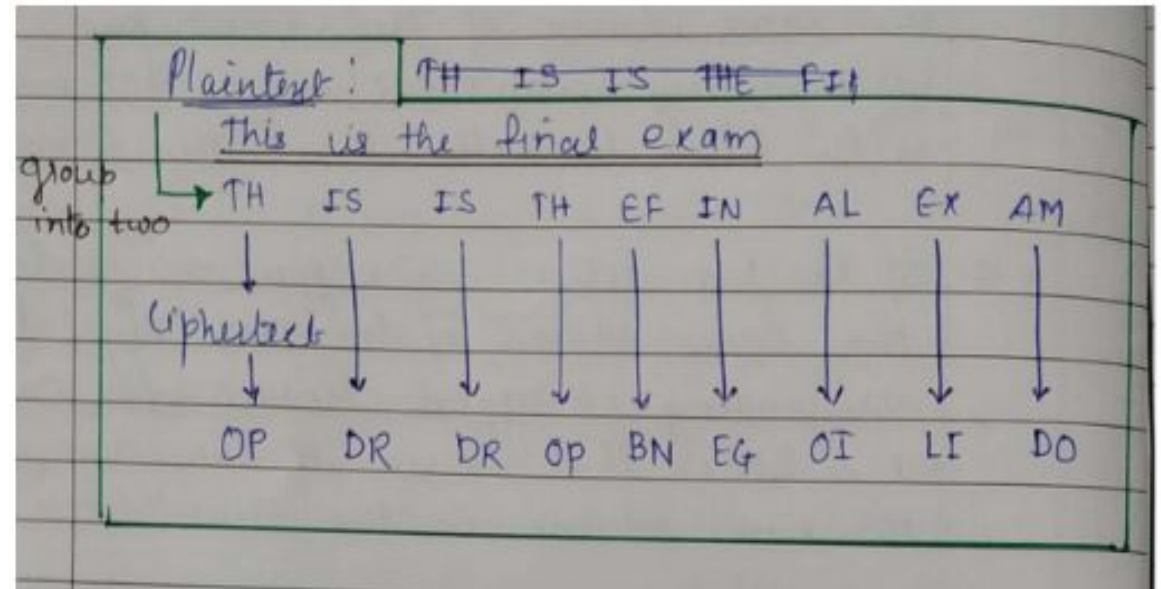 Plaintext: TH IS IS THE FI
This is the final exam
group into two
TH IS IS TH EF IN AL EX AM
Ciphertext
OP DR DR OP BN EG OI LI DO